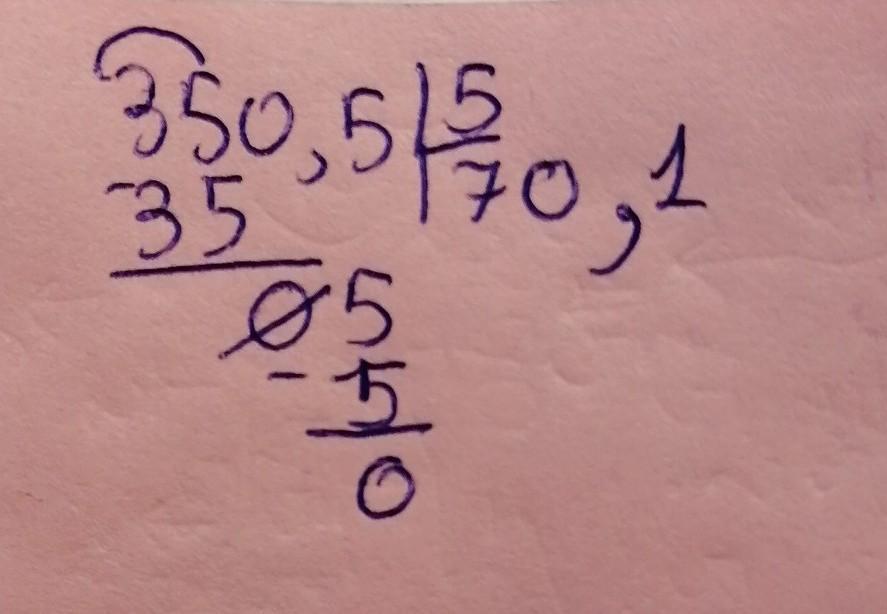 350,5 5
-35 70,1
05
-5
0